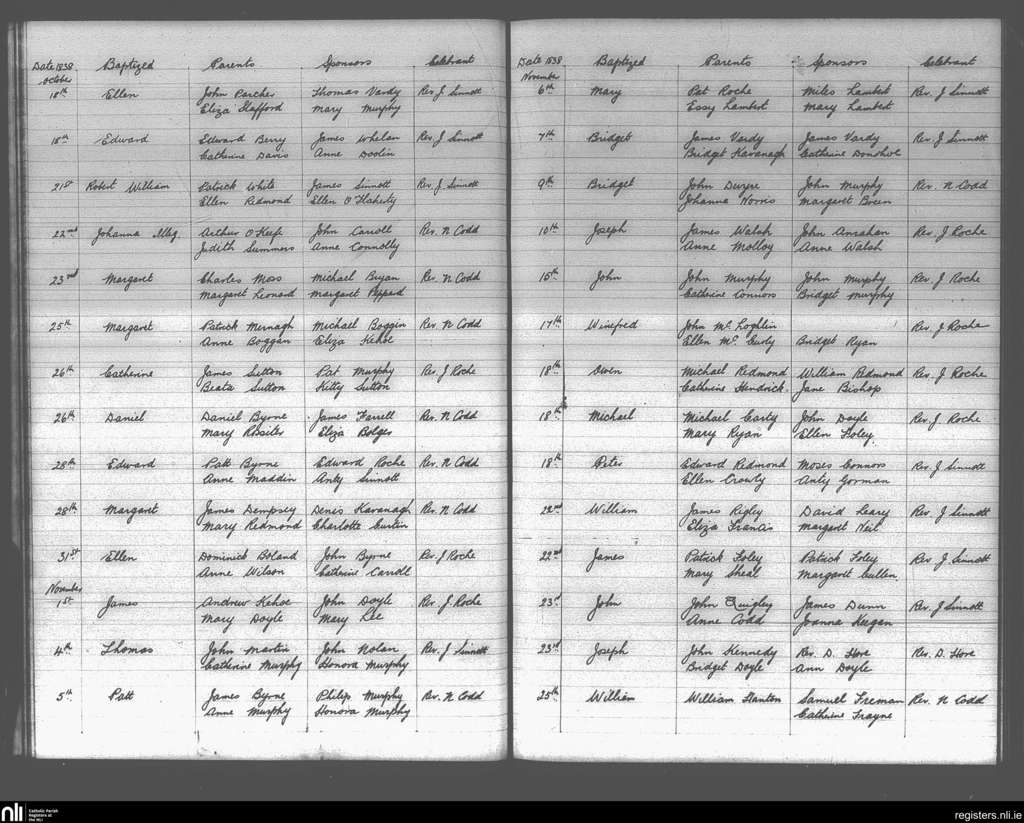 Date 1838 Baptized Parents Sponsors Celebrant
October
18th Ellen John Parcher Thomas Vardy Rev J Sinnott
Eliza Stafford Mary Murphy
18th Edward Edward Berry James Whelan Rev J Sinnott
Catherine Davis Anne Doolin
21st Robert William Patrick White James Sinnott Rev. J. Sinnott
Ellen Redmond Ellen O'Flaherty
22nd Johanna Arthur O'Keefe John Carroll Rev. N Codd
Judith Summers Anne Connolly
23rd Margaret Charles Moss Michael Bryan Rev. N Codd
Margaret Leonard Margaret Peppard
25th Margaret Patrick Mernagh Michael Boggin Rev. N Codd
Anne Boggan Eliza Kehoe
26th Catherine James Sutton Pat Murphy Rev. J Roche
Beata Sutton Kitty Sutton
26th Daniel Daniel Byrne James Farrell Rev. N Codd
Mary Rositer Eliza Bolger
28th Edward Patt Byrne Edward Roche Rev. N Codd
Anne Maddin Anty Sinnott
28th Margaret James Dempsey Denis Kavanagh Rev. N Codd
Mary Redmond Charlotte Curtin
31st Ellen Dominick Boland John Byrne Rev. J Roche
Anne Wilson Catherine Carroll
November
1st James Andrew Kehoe John Doyle Rev. J. Roche
Mary Doyle Mary Lee
4th Thomas John Martin John Nolan Rev. J Sinnott
Catherine Murphy Honora Murphy
5th Patt James Byrne Philip Murphy Rev. N Codd
Anne Murphy Honora Murphy
Date 1838 Baptized Parents Sponsors Celebrant
November
6th Mary Pat Roche Miles Lambert Rev. J Sinnott
Essy Lambert Mary Lambert
7th Bridget James Vardy James Vardy Rev J Sinnott
Bridget Kavanagh Catherine Donohoe
9th Bridget John Dwyre John Murphy Rev. N Codd
Johanna Norris Margaret Breen
10th Joseph James Walsh John Anrahan Rev. J Roche
Anne Molloy Anne Walsh
15th John John Murphy John Murphy Rev. J Roche
Catherine Connors Bridget Murphy
17th Winefred John Mc Loghlin Rev. J Roche
Ellen Mc Curly Bridget Ryan
18th Owen Michael Redmond William Redmond Rev. J Roche
Catherine Hendrick Jane Bishop
18th Michael Michael Carty John Doyle Rev. J Roche
Mary Ryan Ellen Foley
18th Peter Edward Redmond Moses Connors Rev. J Sinnott
Ellen Crowly Anty Gorman
22nd William James Rigley David Leary Rev. J Sinnott
Eliza Francis Margaret Neil
22nd James Patrick Foley Patrick Foley Rev. J Sinnott
Mary Sheal Margaret Cullen
23rd John John Quigley James Dunn Rev. J Sinnott
Anne Codd Joanna Keegan
23rd Joseph John Kennedy Rev. D. Hore Rev. D. Hore
Bridget Doyle Ann Doyle
25th William William Stanton Samuel Freman Rev. N Codd
Catherine Frayne
nli Catholic Parish
Registers at
the NLI
registers.nli.ie